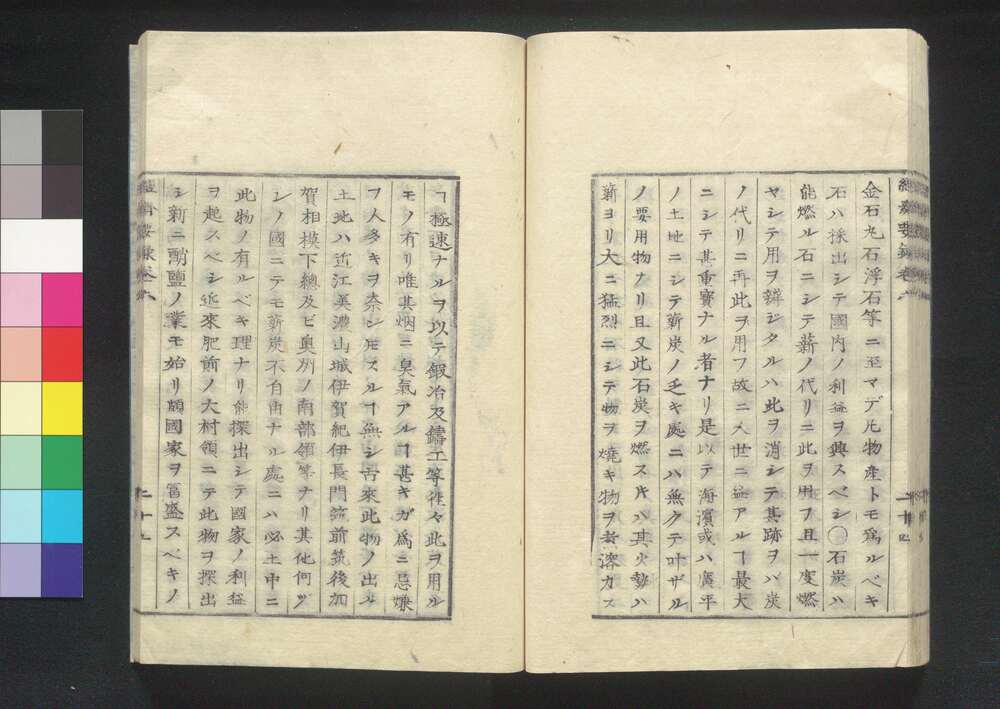 金石丸石浮石等ニ至マデ凡物産トモ爲ルベキ
石ハ採出シテ國内ノ利益ヲ興スベシ〇石炭ハ
能燃ル石ニシテ薪ノ代リニ此ヲ用フ且一度燃
ヤシテ用ヲ辨ジタルハ此ヲ消シテ其跡ヲバ炭
ノ代リニ再此ヲ用フ故ニ人世ニ益アルヿ最大
ニシテ甚重寶ナル者ナリ是以テ海濱或ハ廣平
ノ土地ニシテ薪炭ノ乏キ處ニハ無クテ叶ザル
ノ要用物ナリ且又此石炭ヲ燃ス𪜈ハ其火勢ハ
薪ヨリ大ニ猛烈ニシテ物ヲ燒キ物ヲ煮溶カス
ヿ極速ナルヲ以テ鍛冶及鑄工等往々此ヲ用ル
モノ有リ唯其烟ニ臭氣アルヿ甚キガ爲ニ忌嫌
フ人多キヲ奈ントモスルヿ無シ古來此物ノ出ル
土地ハ近江美濃山城伊賀紀伊長門筑前筑後加
賀相模下總及ビ奥州ノ南部領等ナリ其他何ヅ
レノ國ニテモ薪炭不自由ナル處ニハ必土中ニ
此物ノ有ルベキ理ナリ能探出シテ國家ノ利益
ヲ起スベシ近來肥前ノ大村領ニテ此物ヲ探出
シ新ニ𤇆鹽ノ業モ始リ頗國家ヲ富盛スベキノ